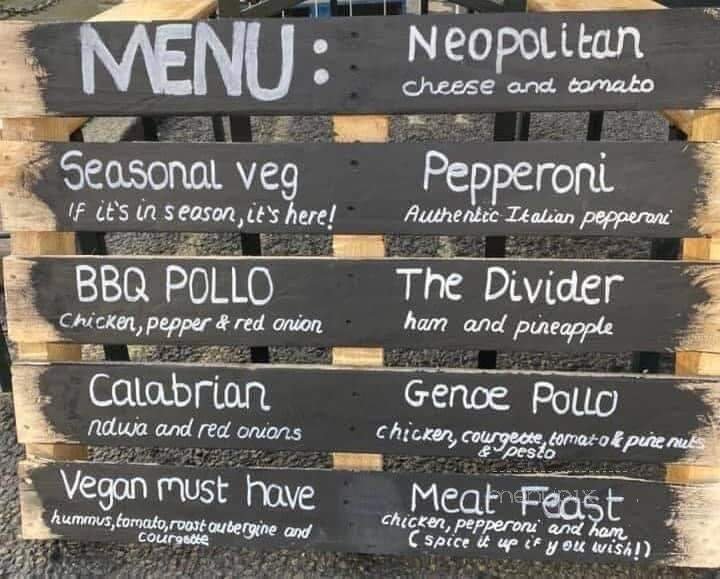 MENU:
Neopolitan
cheese and tomato
Seasonal veg
If it's in season, it's here!
Pepperoni
Authentic Italian pepperoni
BBQ POLLO
Chicken, pepper & red onion
The Divider
ham and pineapple
Calabrian
nduja and red onions
Genoe Pollo
chicken, courgette, tomato & pine nuts
& pesto
Vegan must have
hummus, tomato, roast aubergine and
courgette
Meat Feast
chicken, pepperoni and ham
(spice it up if you wish!)
menupix